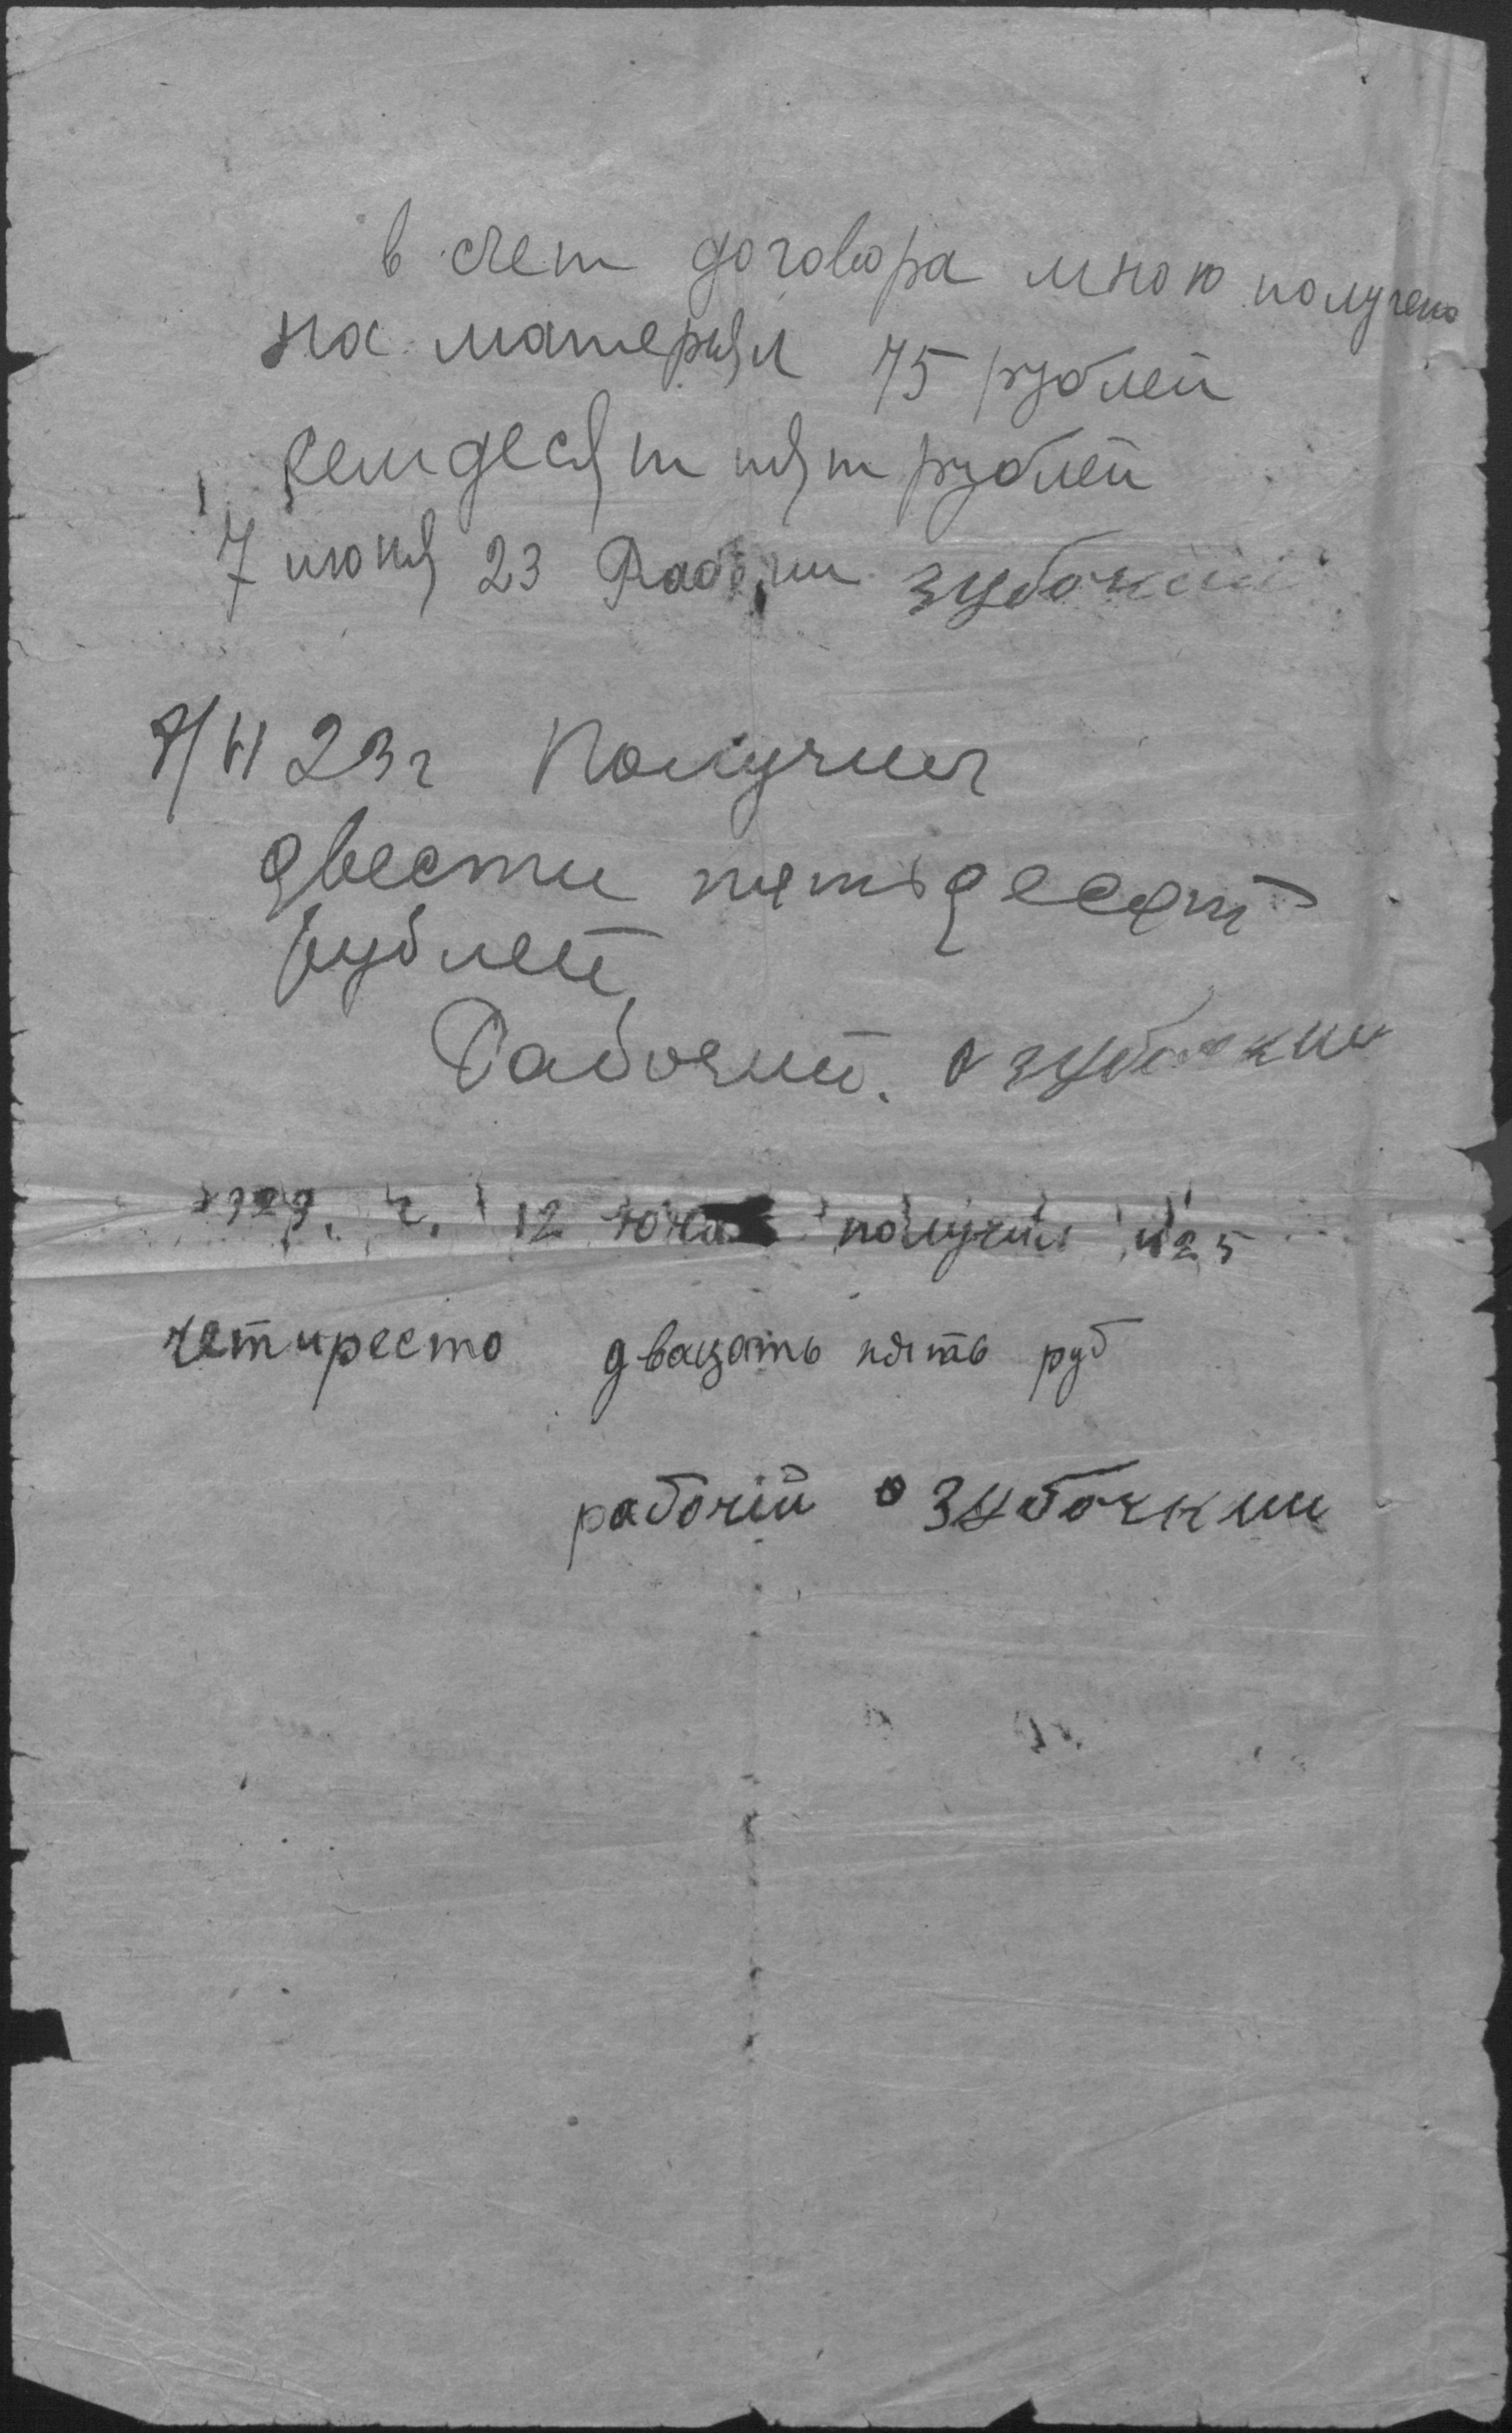 в счет договора мною получено
на материял 75 рублей
семдесят пят рублей
7 июня 23 Рабочи Зубочкий
23г Получил
двести пятьдесят
рублей
Рабочий. Зубочкий
г. 12 получил 425
четиресто двацать пять руб
рабочій О Зубочкий